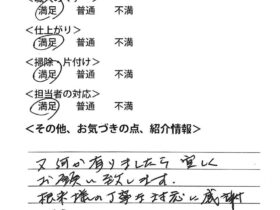 満足 普通 不満
<仕上がり>
満足 普通 不満
<掃除・片付け>
満足 普通 不満
<担当者の対応>
満足 普通 不満
<その他、お気づきの点、紹介情報>
又何か有りましたら宜しく
お願い致します.
根本様の丁寧な対応に感謝